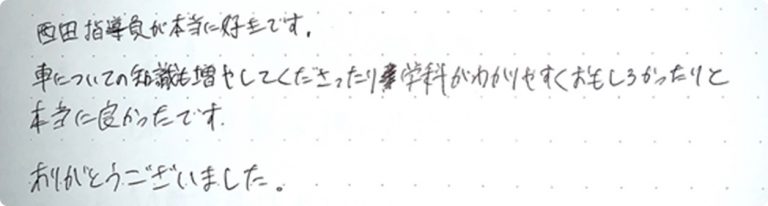 西田指導員が本当に好きです。
車についての知識も増やしてくださったり学科がわかりやすくおもしろかったりと
本当に良かったです。
ありがとうございました。